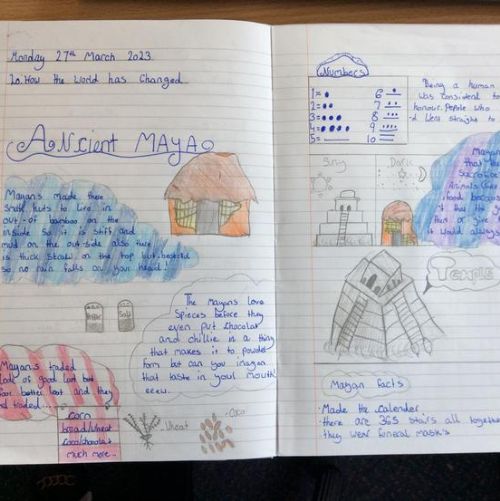 Monday 27th March 2023
Lo. How the World has Changed
Ancient MAYA
Mayan's made there
small huts to live in
out of bamboo on the
inside so it is stiff and
mud on the out-side also there
is thick straw on the top
so no rain falls on your head!
Pepper
Salt
The Mayans love
Spieces before they
even put chocolat
and chillie in a thing
that makes it to powder
form but can you imagen
that taste in youl mouth
eeew.
Mayan's traded
of good but
for better loot and they
traded...
corn
bread/wheat
coco/chocolate
much more...
Wheat
Coco
Numbers
1=
2=
3=
4=
5=
6
7
8
9
10=
Being a human
was considerd to
honour. People who
-d Wers straight to
Mayan
that
Sacrifice
Animals
food because
it that
then or give
it world always
Temple
Mayan facts
· Made the calender
· there are 365 stairs all together
· they wear funeral mask's